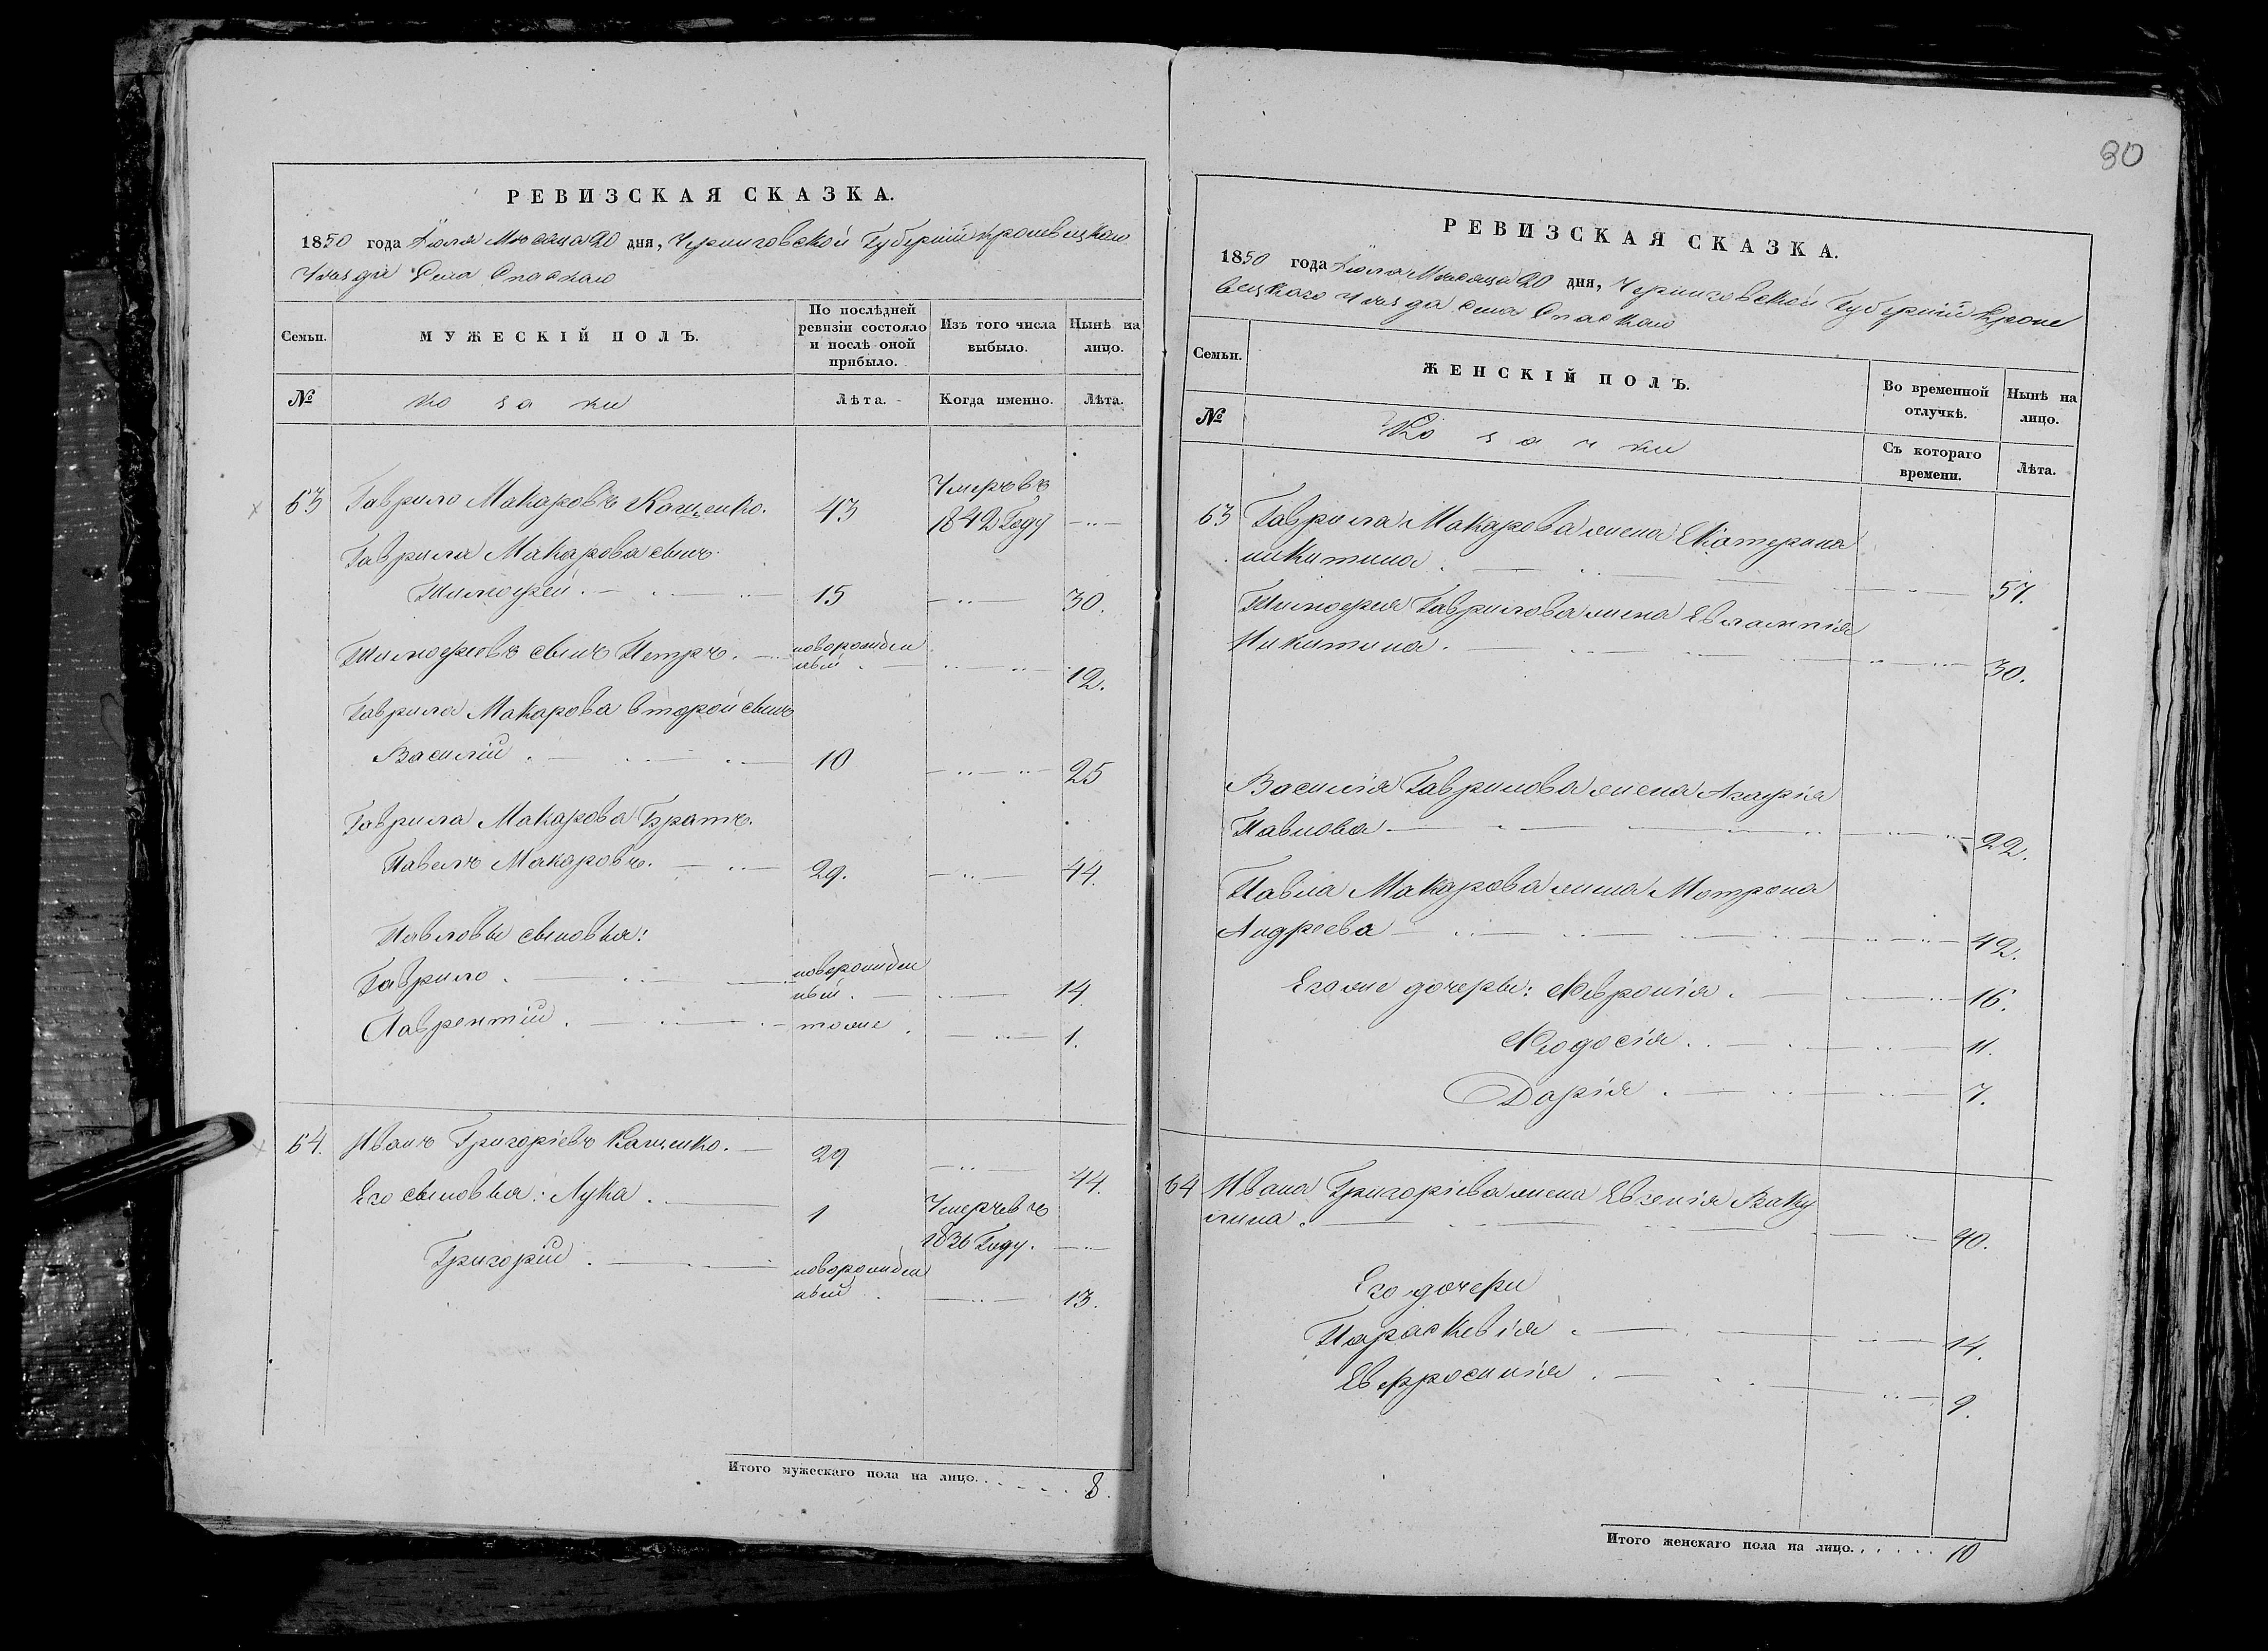 РЕВИЗСКАЯ СКАЗКА.
1850 года Іюля Месяца 20 дня, Черниговской Губерніи Кролевецкаго
Уезда Села Спаскаго
Семьи.
МУЖЕСКІЙ ПОЛЪ.
По послѣдней ревизіи состояло и послѣ оной прибыло.
Изъ того числа выбыло.
Нынѣ на лицо.
№
Козаки
Лѣта.
Когда именно.
Лѣта.
63 Гаврило Макаровъ Кащенко. 43 Умеръ въ 1842 Году
Гаврила Макарова сынъ
Тимофей. 15 30.
Тимофеевъ сынъ Петръ. новорожден
ный 12.
Гаврила Макарова второй сынъ
Василій 10 25
Гаврила Макарова Братъ.
Павелъ Макаровъ. 29. 44.
Павловы сыновья:
Гаврило новорожден
ный 14.
Лаврентій тоже 1.
64. Иванъ Григоріевъ Кащенко. 29 44.
Его сыновья: Лука 1 Умеръ въ
1836 Году.
Григорій новорожден
ный 13.
Итого мужескаго пола на лицо. 8.
30
РЕВИЗСКАЯ СКАЗКА.
1850 года Іюля Месяца 20 дня, Черниговской Губерніи Кроле
вецкаго Уезда Села Спаскаго
Семьи.
ЖЕНСКІЙ ПОЛЪ.
Во временной отлучкѣ.
Нынѣ на лицо.
№
Козачки
Съ котораго времени.
Лѣта.
63 Гаврила Макарова жена Екатерина
Никитина 57.
Тимофея Гаврилова жена Евлампія
Никитина. 30.
Василія Гаврилова жена Агафія
Павлова 22.
Павла Макарова жена Мотрона
Андреева 42.
Его же дочеры: Февронія 16.
Феодосія 11.
Дарія 7.
64 Ивана Григоріева жена Евгенія Ваку
лина 40.
Его дочери
Параскевія 14.
Евфросинія 9.
Итого женскаго пола на лицо. 10